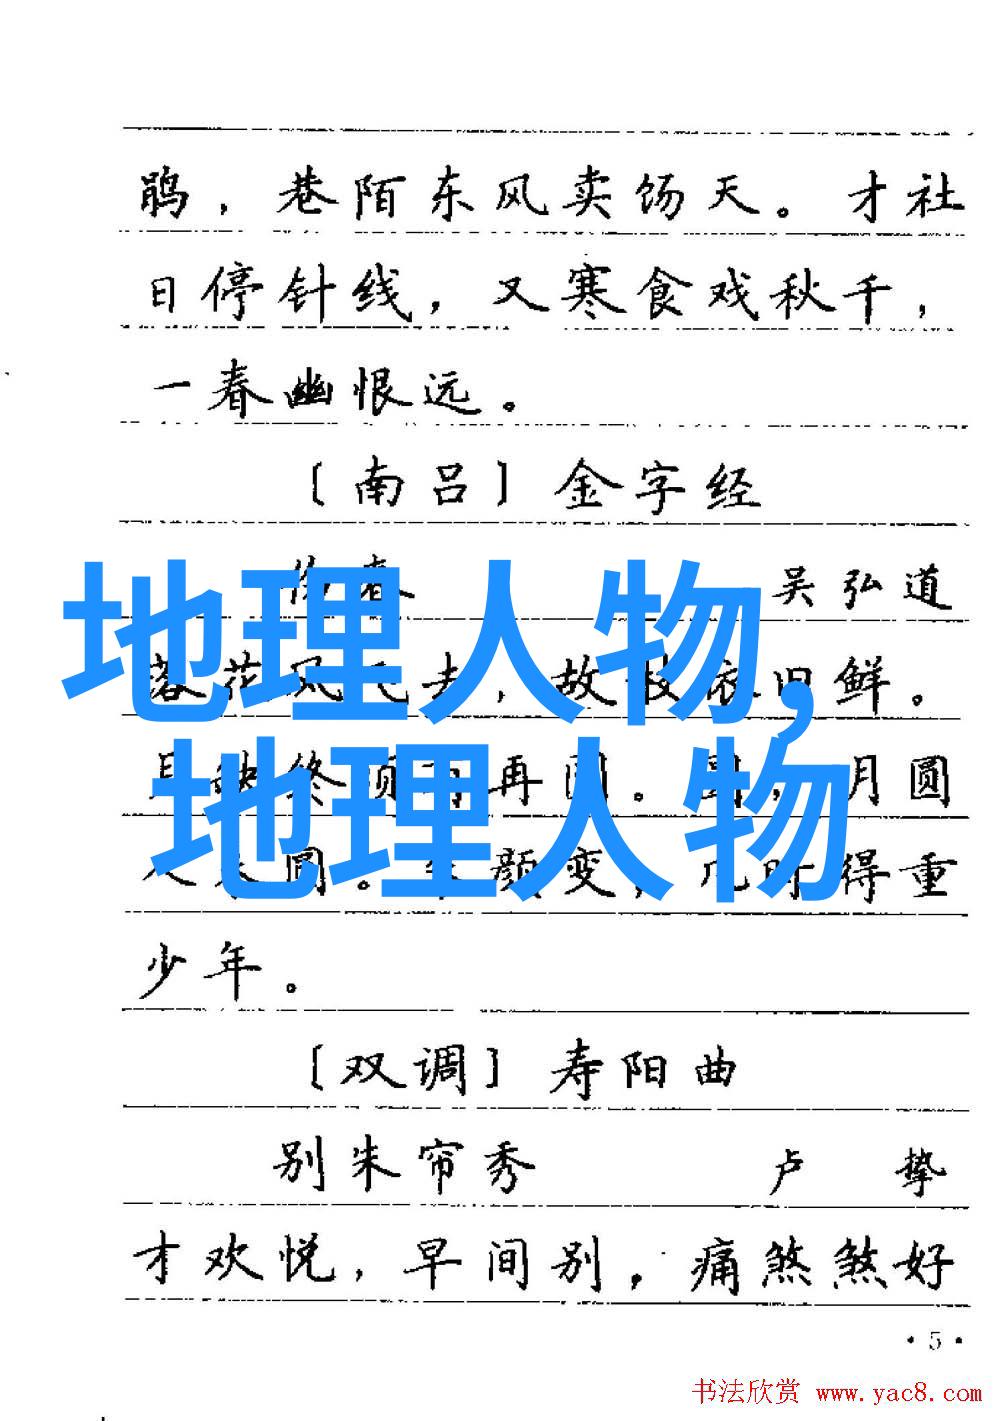 鹃，巷陌东风卖饧天。才社
日停针线，又寒食戏秋千，
一春幽恨远。
〔南吕〕金字经
伤春 吴弘道
地理人物，
落花风飞去，故枝依旧鲜。
月缺终须有再圆。圆，月圆
地理人物
人未圆。朱颜变，几时得重
少年。
〔双调〕寿阳曲
别朱帘秀 卢挚
才欢悦，早间别，痛煞煞好
·5·
书法欣赏 www.yac8.com